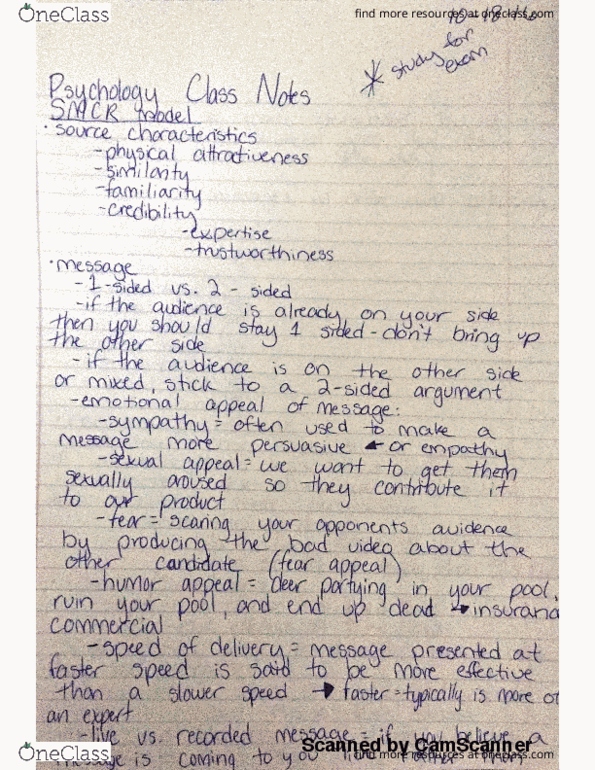 OneClass
find more resources at oneclass.com
* study for
exam
Psychology Class Notes
SMCR Model
· source characteristics
-physical attractiveness
-similarity
-familiarity
-credibility
-expertise
-trustworthiness
· message
- 1-sided vs. 2 - sided
-if the audience is already on your side
then you should stay 1 sided - don't bring up
the other side
- if the audience is on the other side
or mixed, stick to a 2-sided argument
-emotional appeal of message:
-sympathy = often used to make a
message more persuasive ← or empathy
-sexual appeal = we want to get them
sexually aroused so they contribute it
to our product
-fear = scaring your opponents auidence
by producing the bad video about the
other candidate (fear appeal)
-humor appeal = deer partying in your pool,
ruin your pool, and end up dead → insuranc
commercial
-speed of delivery = message presented at
faster speed is said to be more effective
than a slower speed → faster = typically is more of
an expert
-live vs. recorded message = if you believe a
Scanned by CamScanner
message is coming to you
OneClass
find more resources at oneclass.com